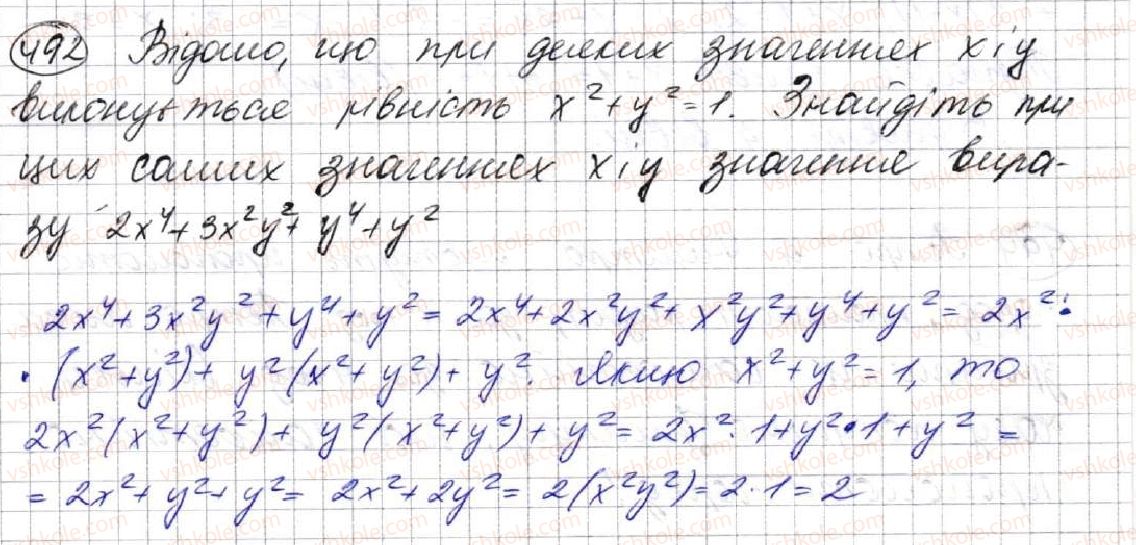 492 Відомо, що при деяких значеннях x і y
виконується рівність x² + y² = 1. Знайдіть при
цих самих значеннях x і y значення вира-
зу 2x⁴ + 3x²y² + y⁴ + y²
2x⁴ + 3x²y² + y⁴ + y² = 2x⁴ + 2x²y² + x²y² + y⁴ + y² = 2x² ·
· (x² + y²) + y²(x² + y²) + y². Якщо x² + y² = 1, то
2x²(x² + y²) + y²(x² + y²) + y² = 2x² · 1 + y² · 1 + y² =
= 2x² + y² + y² = 2x² + 2y² = 2(x²y²) = 2 · 1 = 2